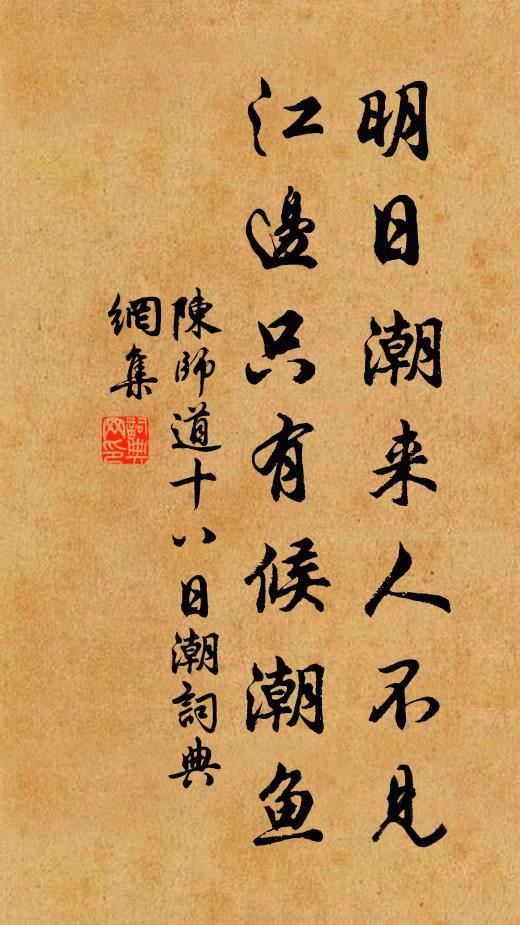 明日潮来人不见
江邊只有候潮鱼
陳師道十八日潮詞典
網集
詞典網印